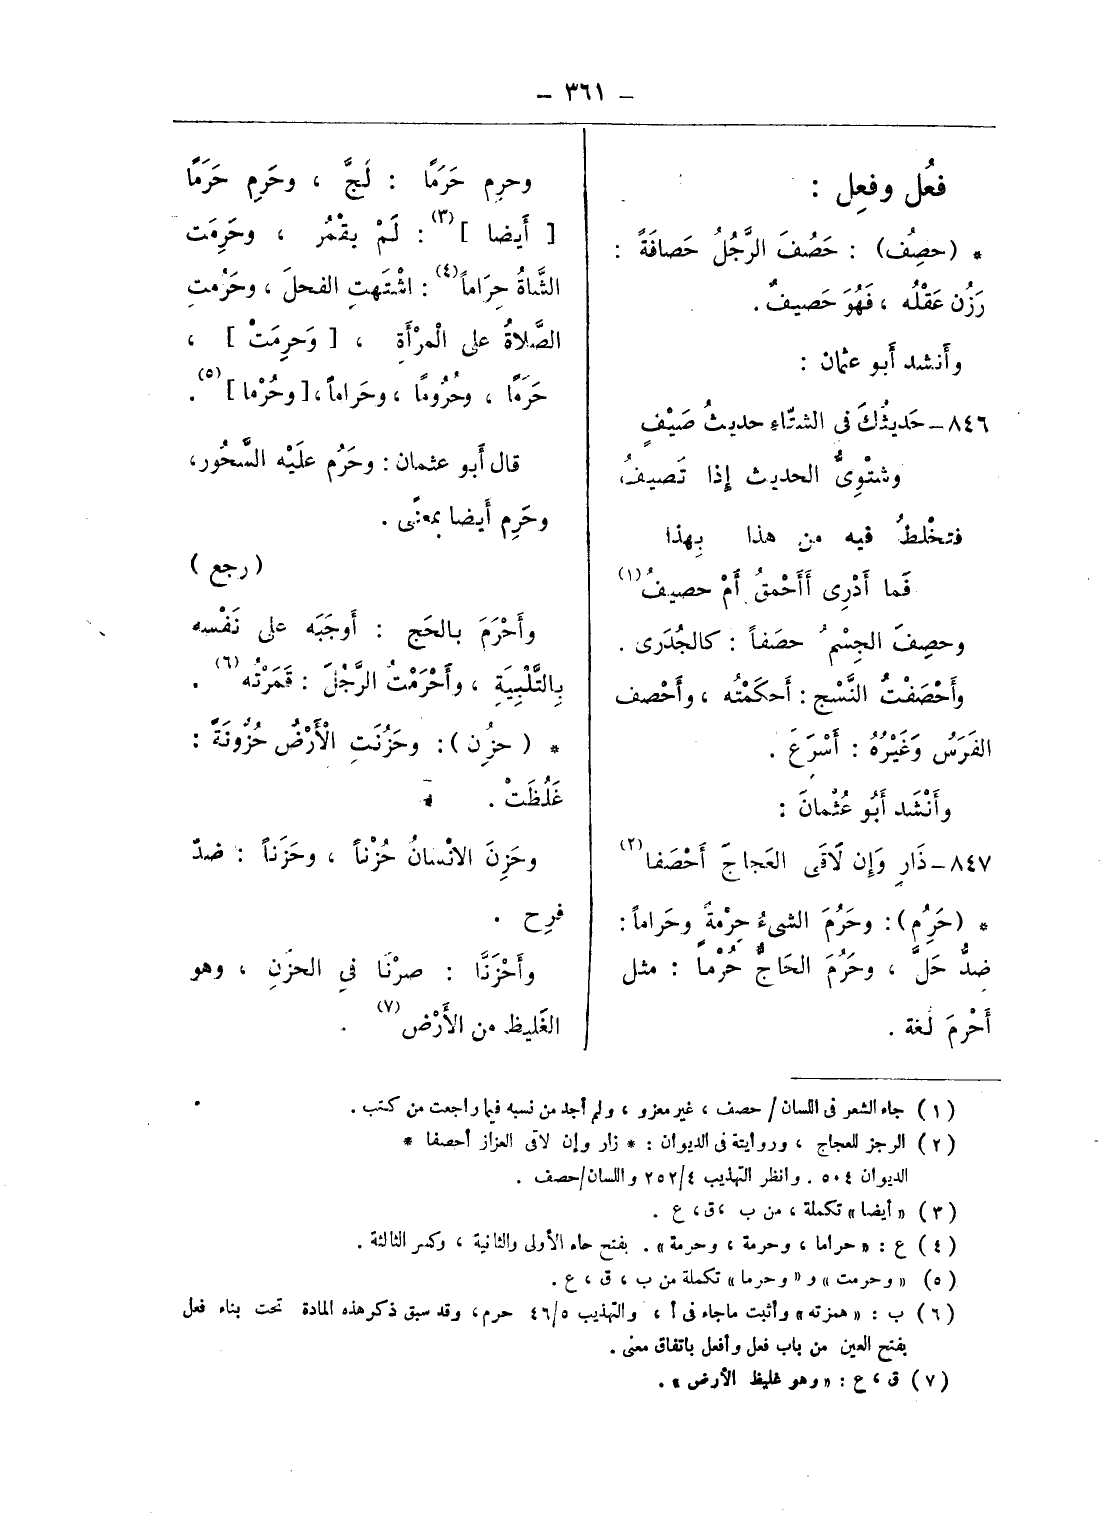 – ٣٦١ –
فعُل وفعِل :
* (حصُِف) : حَصُفَ الرَّجُلُ حَصافَةً :
رَزُن عَقْلُه ، فَهُوَ حَصيفٌ .
وأَنشد أَبو عثمان :
٨٤٦ – حَديثُكَ فى الشتَّاءِ حديثُ صَيْفٍ
وشتْوِىُّ الحديث إِذا تَصيفُ
فتخْلطُ فيه من هذا بِهذا
فَما أَدْرِى أَأَحْمقُ أَمْ حصيفُ (١)
وحصِفَ الجِسْمُ حصَفاً : كالجُدَرى .
وأَحْصَفْتُ النَّسْج : أَحكَمْتُه ، وأَحْصف
الفَرَسُ وَغَيْرُهُ : أَسْرَعَ .
وأَنْشَد أَبُو عُثْمانَ :
٨٤٧ – ذَارٍ وَإِن لَاقَى العَجاجَ أَحْصَفا (٢)
* (حَرُِم) : وحَرُمَ الشىءُ حِرْمةً وحَراماً :
ضِدُّ حَلَّ ، وحَرُمَ الحَاجُّ حُرْماً : مثل
أَحْرمَ لغة .
وحرِم حَرَمًا : لَجَّ ، وحَرِمِ حَرَمًا
[ أَيضا ] (٣) : لَمْ يقْمُر ، وحَرِمَت
الشَّاةُ حِرَاماً (٤) : اشْتَهتِ الفحلَ ، وحَرُمتِ
الصَّلاةُ على الْمرْأَةِ ، [ وَحرِمَتْ ] ،
حَرَمًا ، وحُرُومًا ، وحَراماً ، [ وحُرْما ] (٥) .
قال أَبو عثمان : وحَرُم علَيْه السَّحُور ،
وحَرِم أَيضا بمعنًى .
( رجع )
وأَحْرَمَ بالحَج : أَوجَبَه على نَفْسه
بِالتَّلْبِيَةِ ، وأَحْرَمْتُ الرَّجُلَ : قَمَرْتُه (٦) .
* ( حزُِن ) : وحَزُنَتِ الْأَرْضُ حُزُونَةً :
غَلُظَتْ .
وحَزِنَ الانْسانُ حُزْناً ، وحَزَناً : ضدّ
فرِح .
وأَحْزَنَّا : صرْنَا فى الحزَنِ ، وهو
الغَليظ من الأَرْض (٧) .
( ١ ) جاء الشعر فى اللسان / حصف ، غير معزو ، ولم أجد من نسبه فيما راجعت من كتب .
( ٢ ) الرجز للعجاج ، وروايتة فى الديوان : * زار وإن لاقى العزاز أحصفا *
الديوان ٥٠٤ . وانظر التهذيب ٢٥٢/٤ واللسان/حصف .
( ٣ ) « أيضا » تكملة ، من ب ، ق ، ع .
( ٤ ) ع : « حراما ، وحرمة ، وحرمة » . بفتح حاء الأولى والثانية ، وكسر الثالثة .
( ٥ ) « وحرمت » و « وحرما » تكملة من ب ، ق ، ع .
( ٦ ) ب : « همزته » وأثبت ماجاء فى أ ، والتهذيب ٤٦/٥ حرم ، وقد سبق ذكر هذه المادة تحت بناء فعل
بفتح العين من باب فعل وأفعل باتفاق معنى .
( ٧ ) ق ، ع : « وهو غليظ الأرض » .